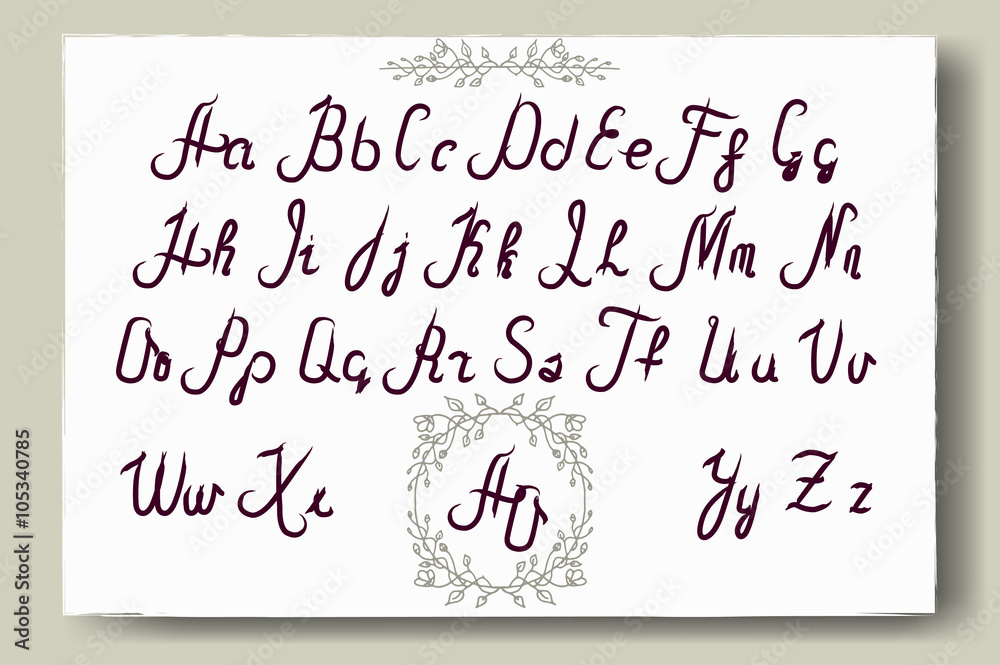 Aa Bb Cc Dd Ee Ff Gg
Hh Ii Jj Kk Ll Mm Nn
Oo Pp Qq Rr Ss Tt Uu Vv
Ww Xx Yy Zz
Adobe Stock | #105340785